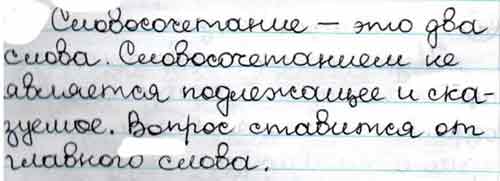 Словосочетание – это два
слова. Словосочетанием не
является подлежащее и ска-
зуемое. Вопрос ставится от
главного слова.